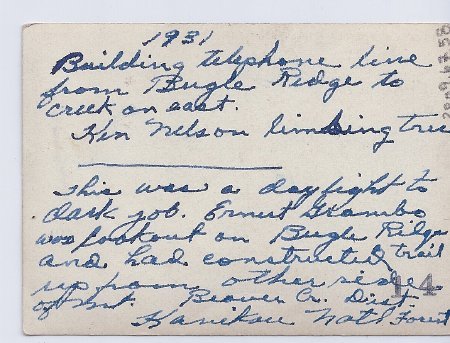 1931
Building telephone line
from Bugle Ridge to
creek on east.
Ken Nelson limbing tree
This was a daylight to
dark job. Ernest Grambo
was lookout on Bugle Ridge
and had constructed trail
up from other side
of Mt. Beaver Cr. Dist.
Kaniksu Natl Forest
14